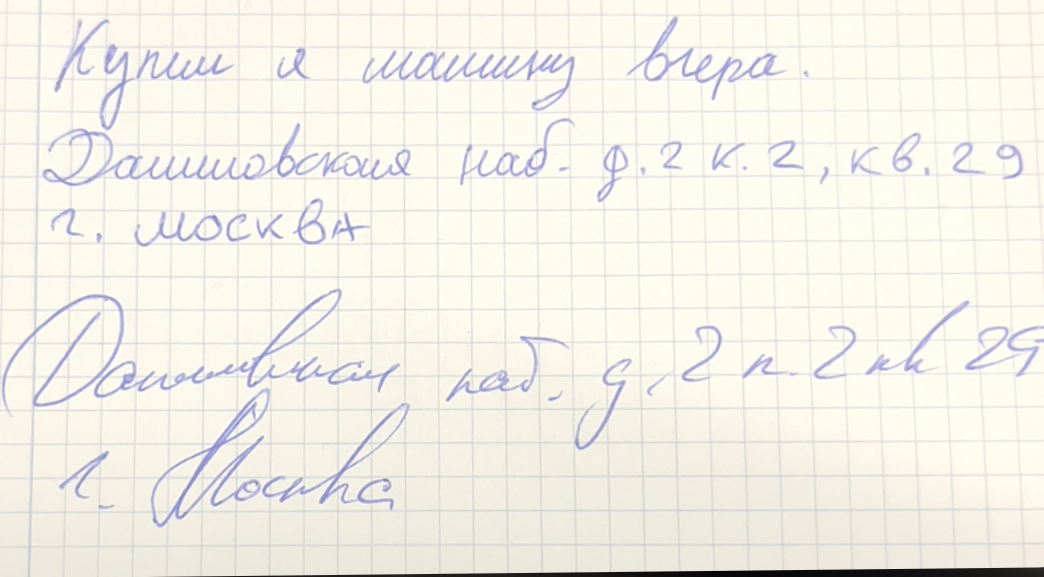 Купил я машину вчера.
Даниловская наб. д. 2 к. 2, кв. 29
г. МОСКВА
Даниловская наб. д. 2 к. 2 кв 29
г. Москва